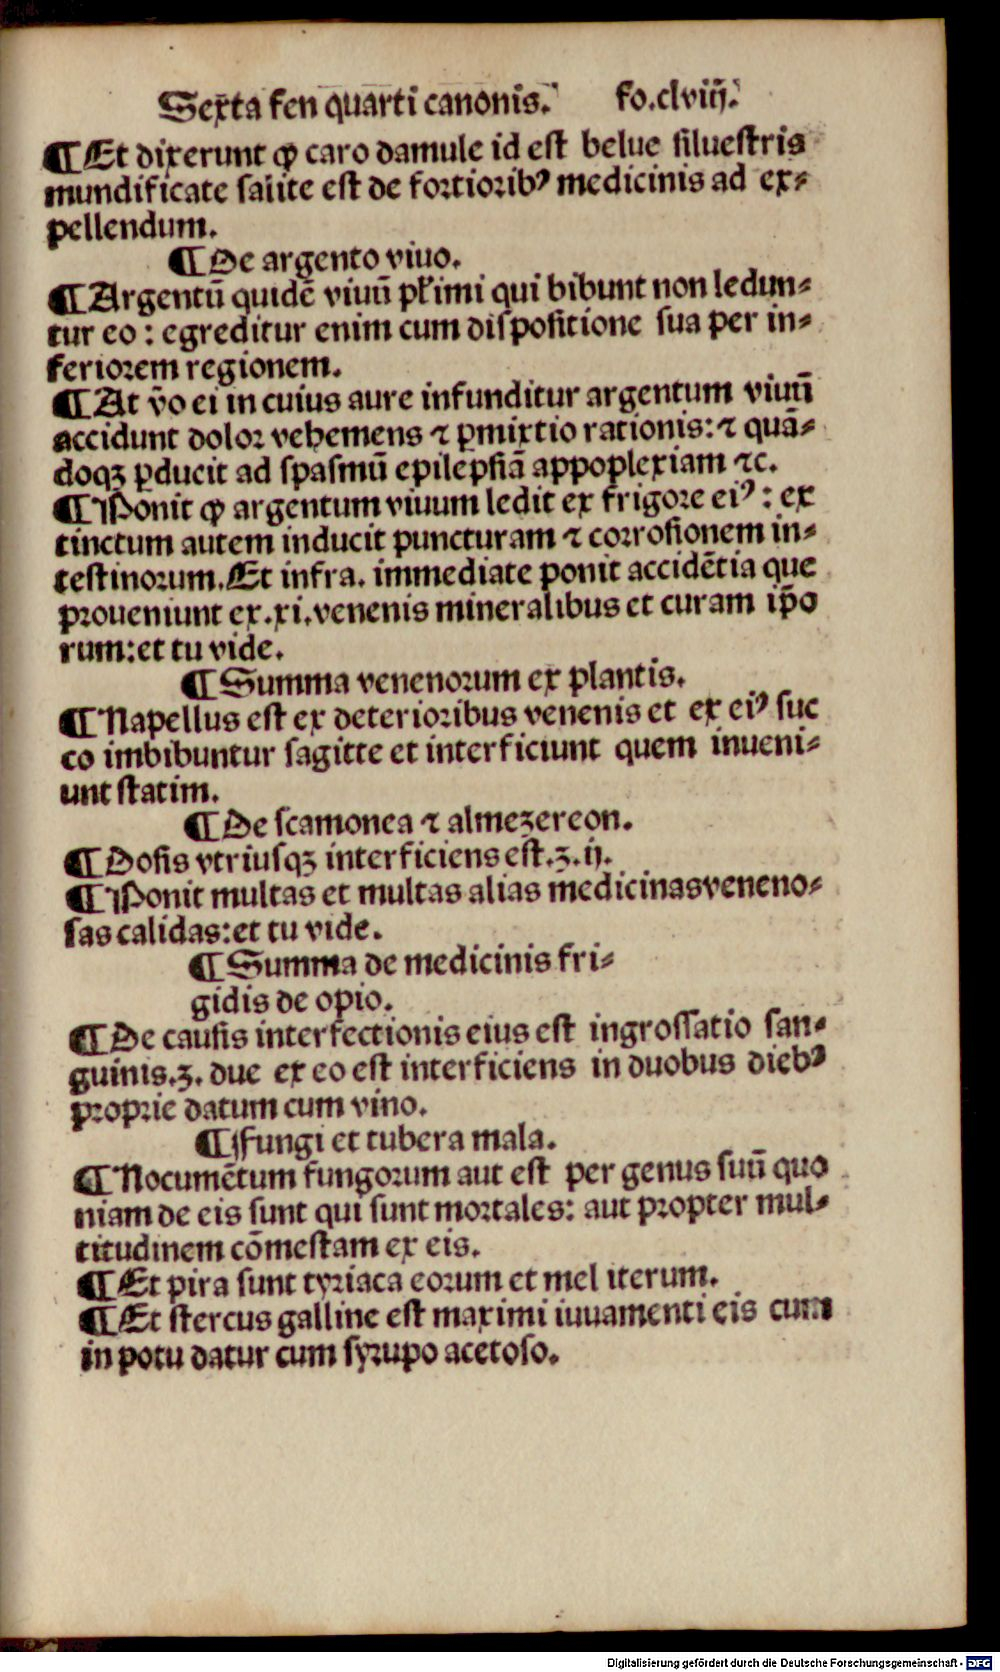 Sexta fen quarti canonis. fo.clviij.
¶ Et dixerunt ꝙ caro damule id est belue siluestris
mundificate salite est de fortioribꝰ medicinis ad ex⸗
pellendum.
¶ De argento viuo.
¶ Argentū quidē viuū plʼimi qui bibunt non ledun⸗
tur eo : egreditur enim cum dispositione sua per in⸗
feriorem regionem.
¶ At v̄o ei in cuius aure infunditur argentum viuū
accidunt dolor vehemens ⁊ ꝑmixtio rationis: ⁊ quā⸗
doqꝫ ꝑducit ad spasmū epilepsiā appoplexiam ⁊c.
¶ Ponit ꝙ argentum viuum ledit ex frigore eiꝰ : ex
tinctum autem inducit puncturam ⁊ corrosionem in⸗
testinorum. Et infra. immediate ponit accidētia que
proueniunt ex .xi. venenis mineralibus et curam ip̄o
rum: et tu vide.
¶ Summa venenorum ex plantis.
¶ Napellus est ex deterioribus venenis et ex eiꝰ suc
co imbibuntur sagitte et interficiunt quem inueni⸗
unt statim.
¶ De scamonea ⁊ almezereon.
¶ Dosis vtriusqꝫ interficiens est .ʒ. ij.
¶ Ponit multas et multas alias medicinas veneno⸗
sas calidas: et tu vide.
¶ Summa de medicinis fri⸗
gidis de opio.
¶ De causis interfectionis eius est ingrossatio san⸗
guinis .ʒ. due ex eo est interficiens in duobus diebꝰ
proprie datum cum vino.
¶ Fungi et tubera mala.
¶ Nocumētum fungorum aut est per genus suū quo
niam de eis sunt qui sunt mortales: aut propter mul⸗
titudinem cōmestam ex eis.
¶ Et pira sunt tyriaca eorum et mel iterum.
¶ Et stercus galline est maximi iuuamenti eis cum
in potu datur cum syrupo acetoso.
Digitalisierung gefördert durch die Deutsche Forschungsgemeinschaft - DFG